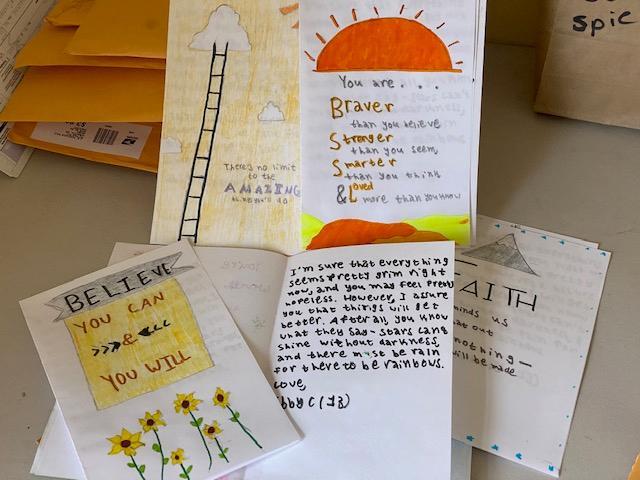 SPIC
There's no limit
to the
AMAZING
You are . . .
Braver
than you believe
Stronger
than you seem,
Smarter
than you think
& Loved
more than you know
BELIEVE
YOU CAN
&
YOU WILL
I'm sure that everything
seems pretty grim right
now, and you may feel pretty
hopeless. However, I assure
you that things will get
better. After all, you know
what they say-stars can't
shine without darkness,
and there must be rain
for there to be rainbows.
Love,
bby C (13)
AITH
inds us
at out
nothing—
will be made